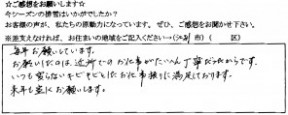 ☆ご感想をお願いします☆
今シーズンの接客はいかがでしたか？
お客様の声が、私たちの原動力になっています。ぜひ、ご感想をお聞かせ下さい。
※差支えなければ、お住まいの地域をご記入ください→( 市) ( 区)
毎年お願いしています。
お願いしたのは、近所でのお仕事がたいへん丁寧だったからです。
いつも変らないキビキビとしたお仕事振りに満足しております。
来年も宜しくお願いします。